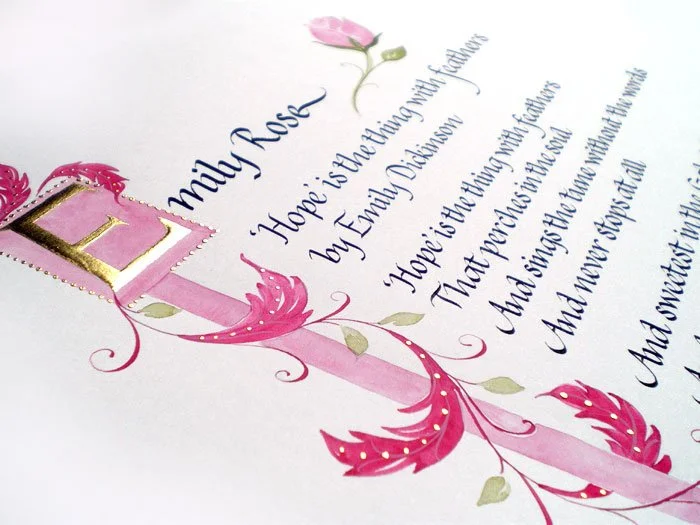 Emily Rose
'Hope' is the thing with feathers
by Emily Dickinson
'Hope' is the thing with feathers
That perches in the soul
And sings the tune without the words
And never stops at all
And sweetest in the